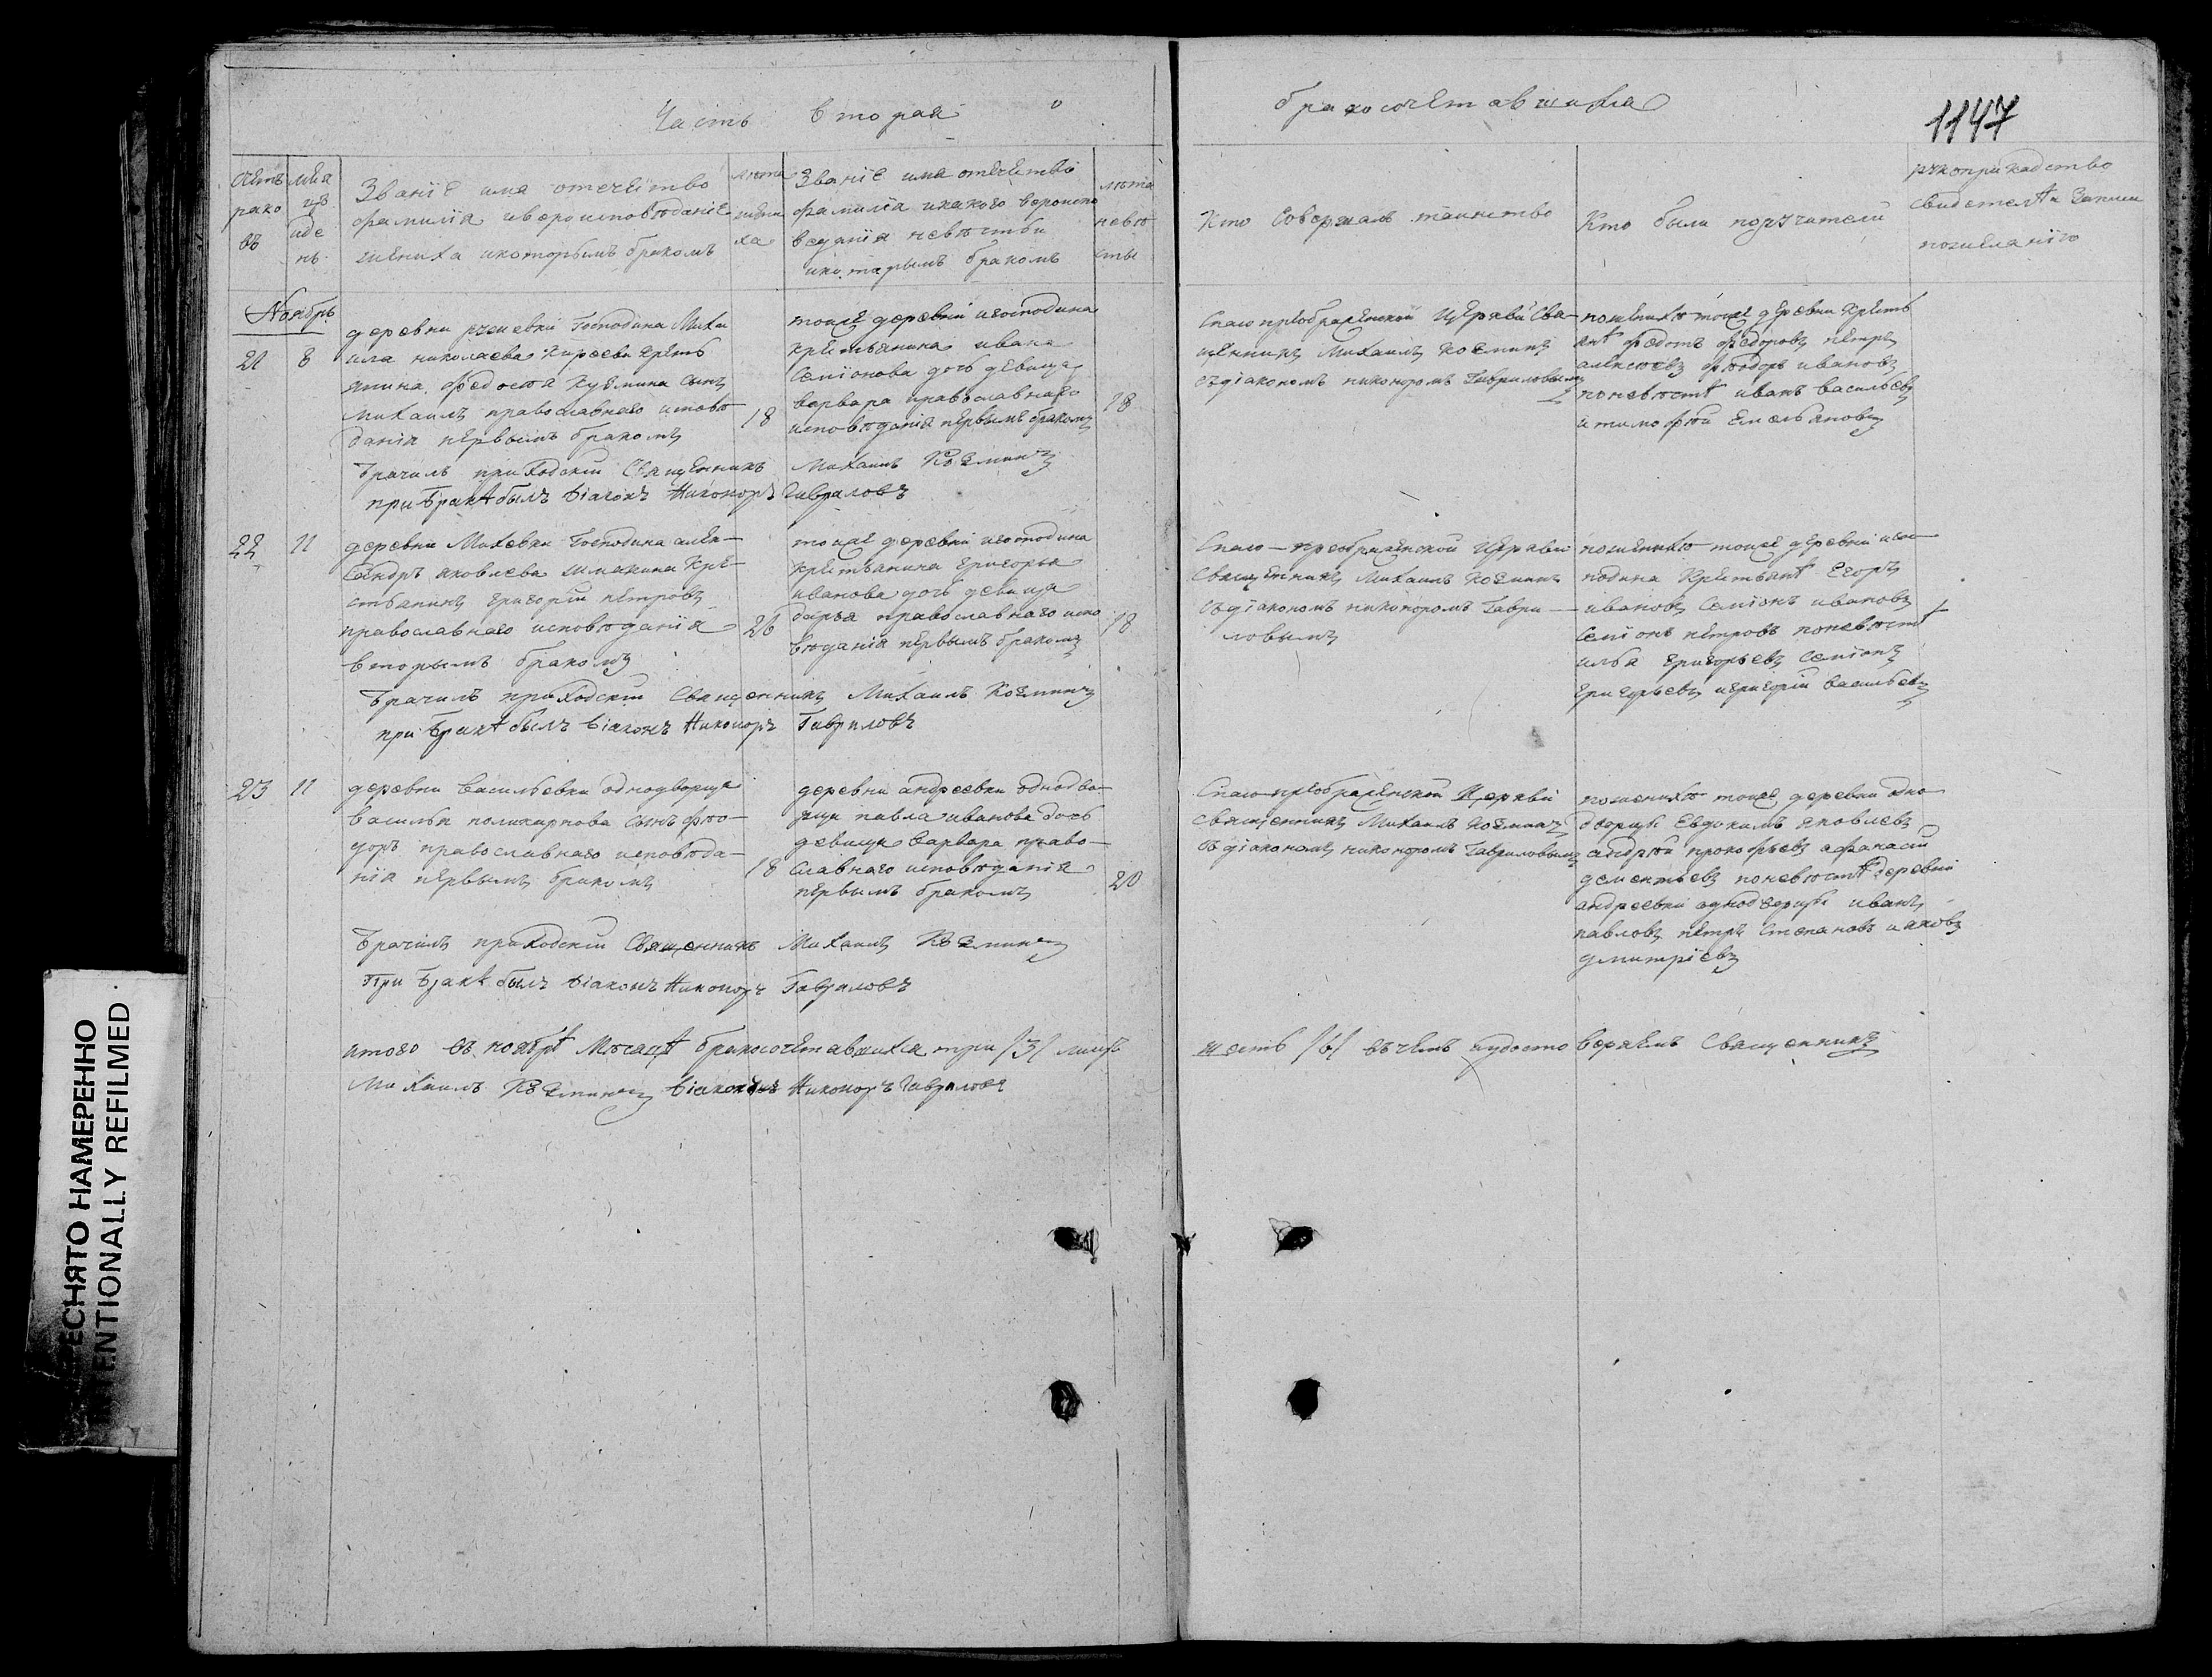 Часть вторая
бракосочетавшихся
1147
счетъ
рако
въ
мѣся
цъ
иде
нь
Званїе имя отечество
фамилїя ивероисповѣданїе
жениха икоторымъ бракомъ
лѣта
жени
ха
Званїе имя отечество
фамилїя икакого вероиспо
веданїя невѣсты
икоторымъ бракомъ
лѣта
невѣ
сты
Кто совершалъ таинство
Кто были поручатели
рукоприкладство
свидетелѣи записи
пожеланїю
Ноябрь
21
8
деревни Господина Миха
ила николаева Киреева кресть
янина федосѣя кузмина сынъ
Михаилъ православнаго исповѣ
данїя первымъ бракомъ
18
тоиже деревни игосподина
крестьянина ивана
Семїонова дочь девица
варвара православнаго
исповѣданїя первымъ бракомъ
18
Спасопреображенской церкви Свя-
щенникъ Михаилъ Козминъ
съдїакономъ никоноромъ Гавриловымъ
поженихѣ тоиже деревни кресть
янѣ федотъ федоровъ петръ
алексѣевъ фѣодоръ ивановъ
поневѣстѣ иванъ васильевъ
итимофѣи емельяновъ
Брачилъ приходскїи Священникъ Михаилъ Козминъ
при бракѣ былъ дїаконъ Никоноръ Гавриловъ
22
11
деревни Михевки Господина алек-
сандръ яковлева шишкина Кре-
стьянинъ григорїи петровъ
православнаго исповѣданїя
вторымъ бракомъ
26
тоиже деревни игосподина
крестьянина григорья
иванова дочь девица
дарья православнаго испо
вѣданїя первымъ бракомъ
18
Спасо-преображенской церкви
Священникъ Михаилъ Козминъ
съдїакономъ никоноромъ Гаври-
ловымъ
поженихѣ тоиже деревни игос
подина Крестьянѣ Егоръ
ивановъ Семїонъ ивановъ
Семїонъ петровъ поневѣстѣ
илья григорьевъ Семїонъ
григорьевъ игригорїи васильевъ
Брачилъ приходскїи Священникъ Михаилъ Козминъ
при бракѣ былъ дїаконъ Никоноръ Гавриловъ
23
11
деревни васильевки однодворца
василья поликарпова сынъ фѣо-
доръ православнаго исповѣда-
нїя первымъ бракомъ
18
деревни андреевки однодво-
рца павла иванова дочь
девица варвара право-
славнаго исповѣданїя
первымъ бракомъ
20
Спасо-преображенской церкви
священникъ Михаилъ Козминъ
съдїакономъ никоноромъ Гавриловымъ
поженихѣ тоиже деревни одно
дворцы Евдокимъ яковлевъ
андрѣи прокофьевъ афанасїи
дементьевъ поневѣстѣ деревни
андреевки однодворцы иванъ
павловъ петръ Степановъ иаковъ
дмитрїевъ
Брачилъ приходскїи Священникъ Михаилъ Козминъ
При бракѣ былъ дїаконъ Никоноръ Гавриловъ
итого въ ноябрѣ Мѣсяцѣ бракосочетавшихся три /3/ лицъ шесть /6/ въчемъ иудостоверяемъ Священникъ
Михаилъ Козминъ дїаконъ Никоноръ Гавриловъ
ЕСНЯТО НАМЕРЕННО
ENTIONALLY REFILMED